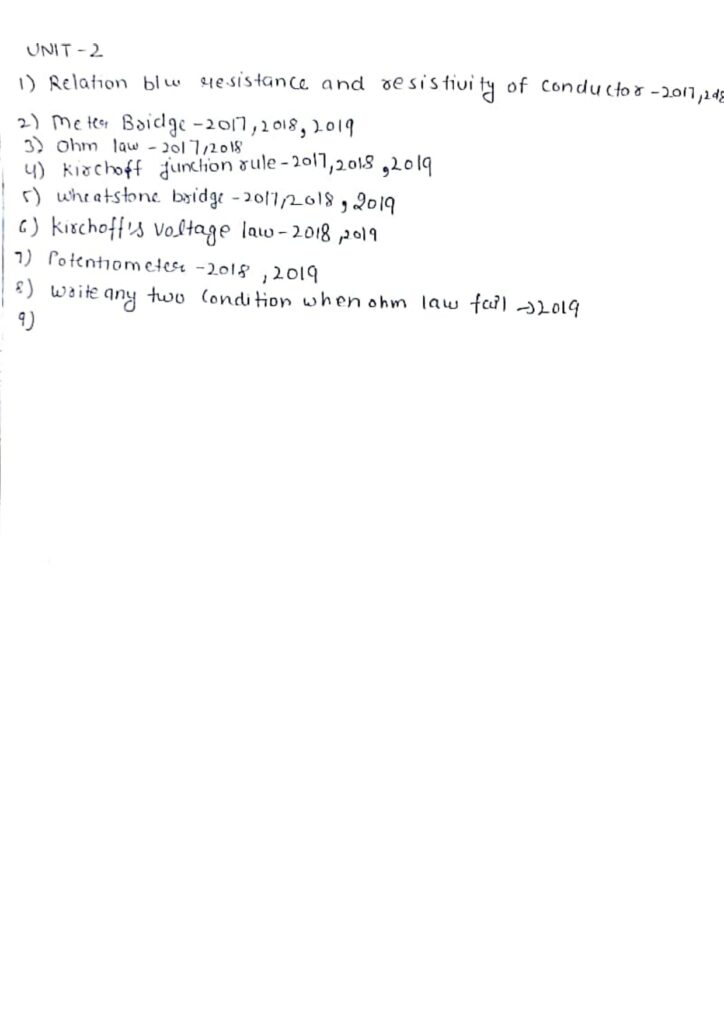 UNIT - 2
1) Relation b/w resistance and resistivity of conductor - 2017,
2) Meter Bridge - 2017, 2018, 2019
3) Ohm law - 2017, 2018
4) Kirchoff junction rule - 2017, 2018, 2019
5) wheatstone bridge - 2017, 2018, 2019
6) kirchoff's voltage law - 2018, 2019
7) Potentiometer - 2018, 2019
8) write any two condition when ohm law fail → 2019
9)